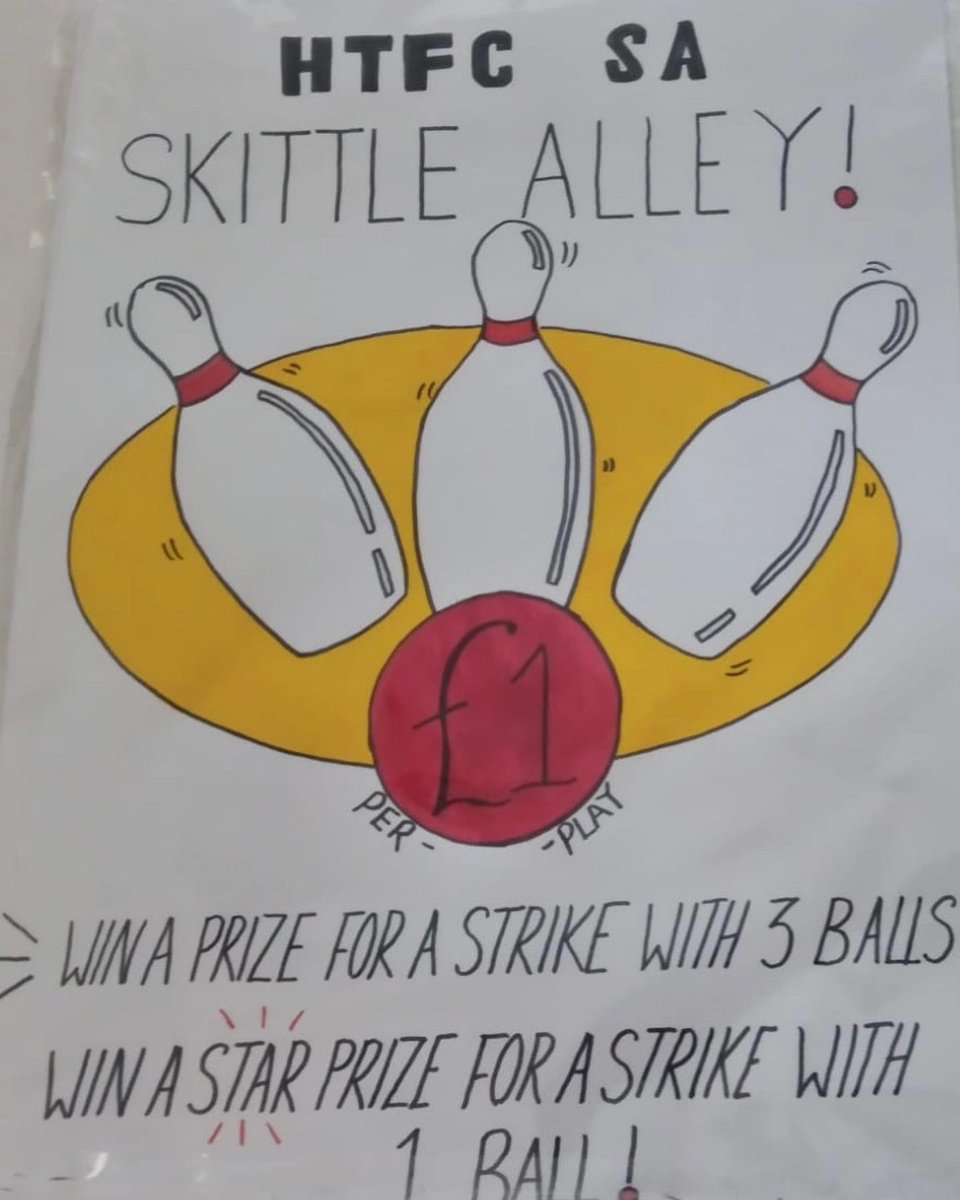 HTFC SA
SKITTLE ALLEY!
£1
PER - - PLAY
WIN A PRIZE FOR A STRIKE WITH 3 BALLS
WIN A STAR PRIZE FOR A STRIKE WITH
1 BALL!